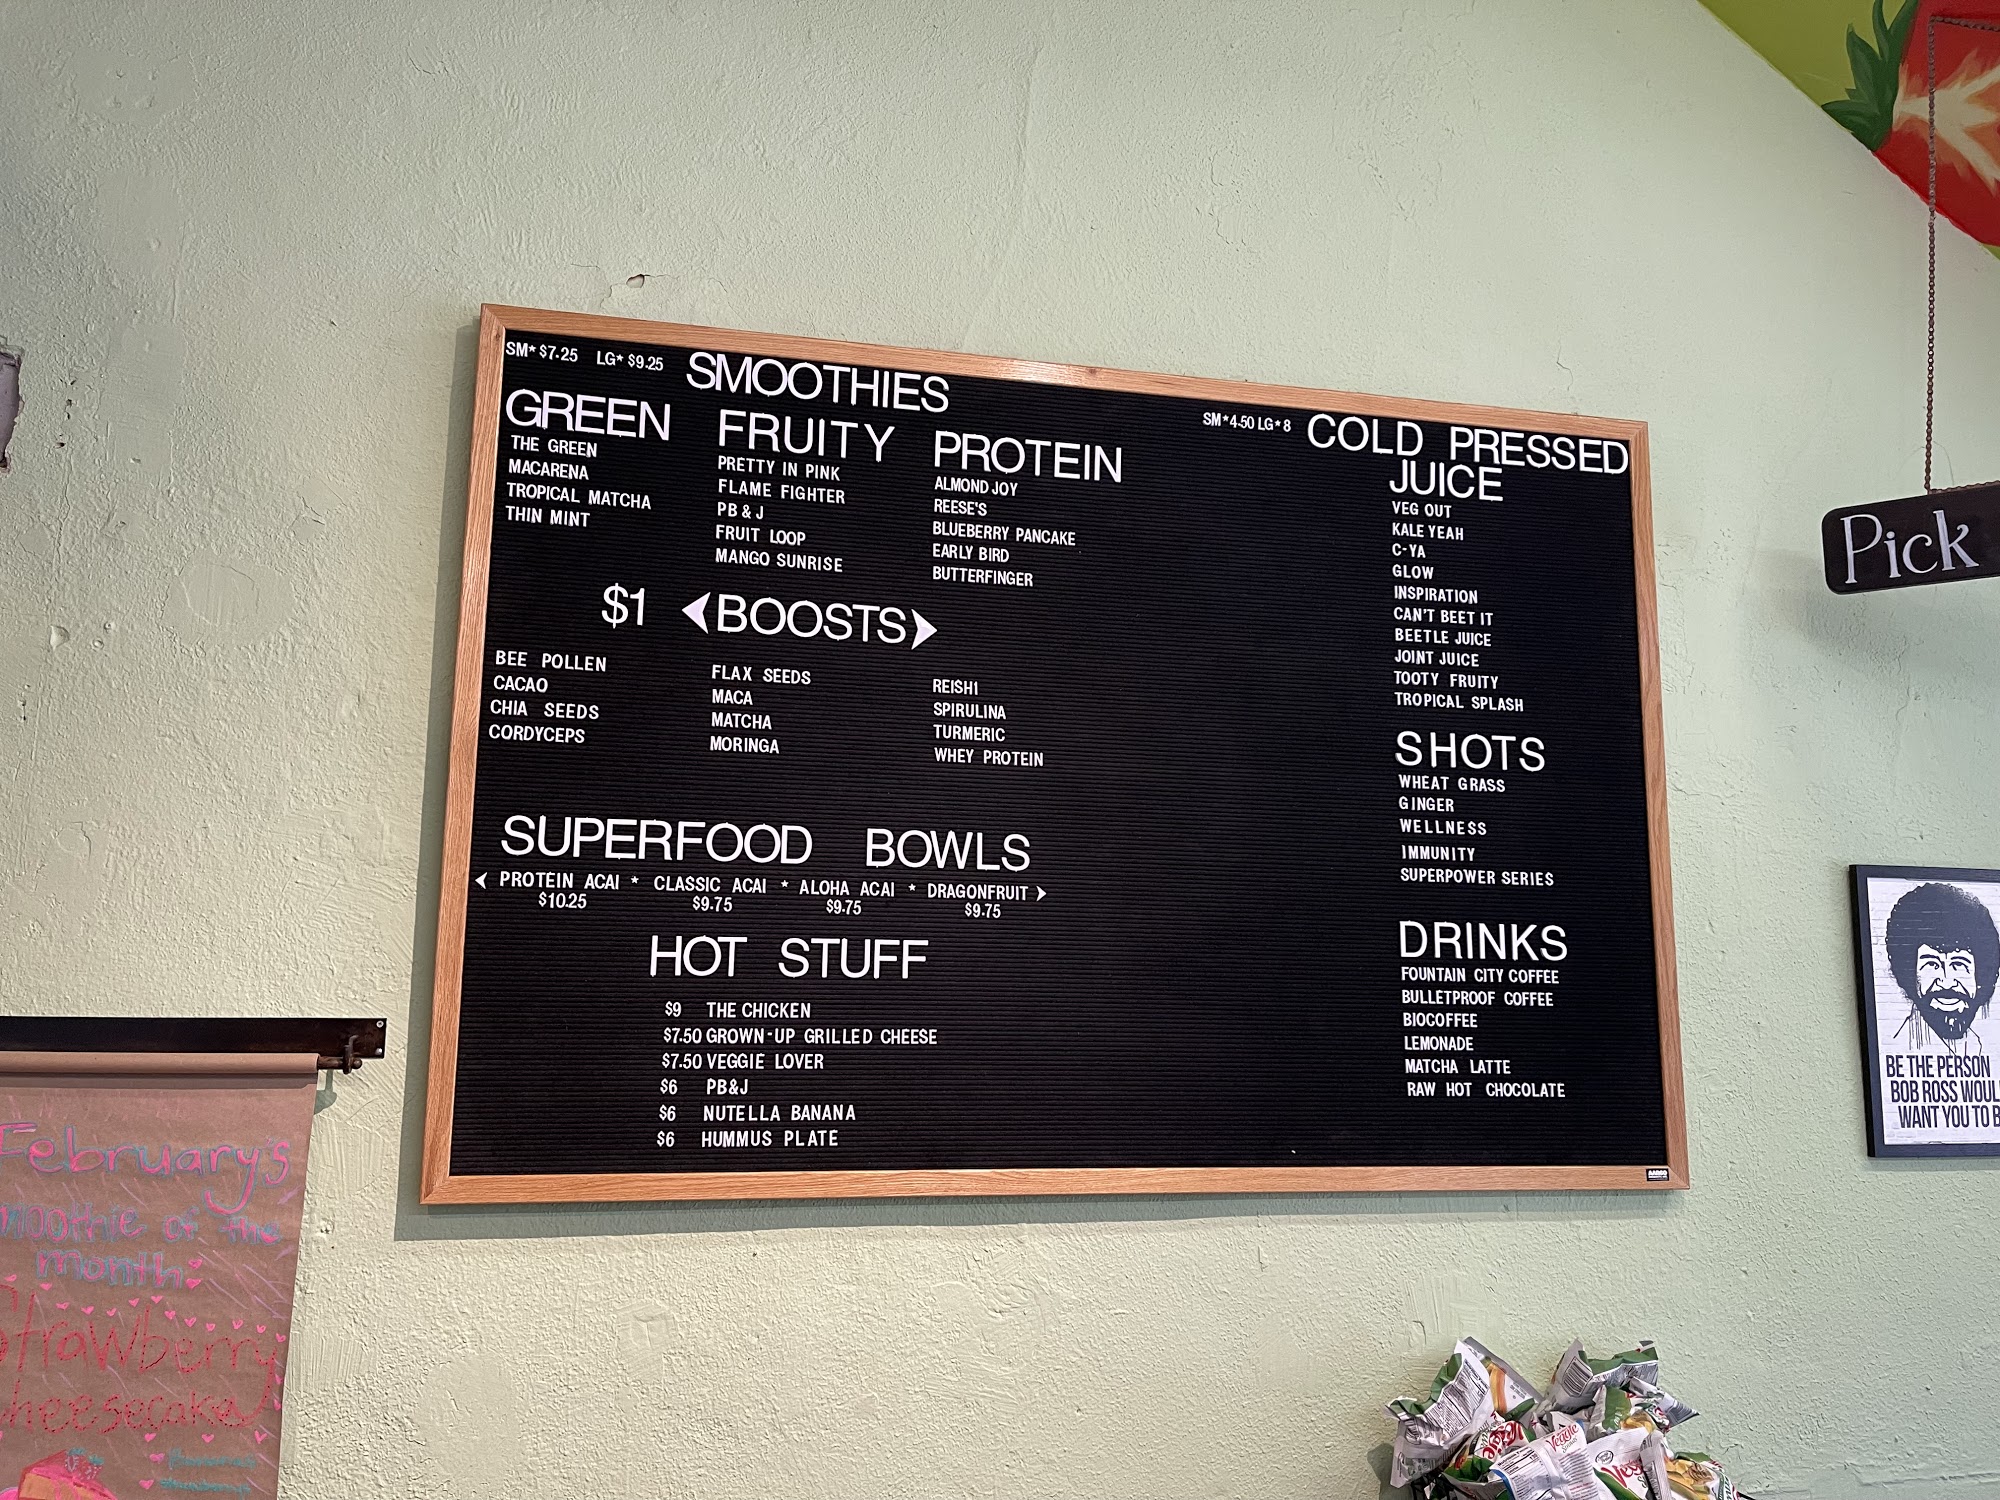 SM* $7.25 LG* $9.25 SMOOTHIES
GREEN
THE GREEN
MACARENA
TROPICAL MATCHA
THIN MINT
FRUITY
PRETTY IN PINK
FLAME FIGHTER
PB & J
FRUIT LOOP
MANGO SUNRISE
PROTEIN
ALMOND JOY
REESE'S
BLUEBERRY PANCAKE
EARLY BIRD
BUTTERFINGER
$1 BOOSTS
BEE POLLEN
CACAO
CHIA SEEDS
CORDYCEPS
FLAX SEEDS
MACA
MATCHA
MORINGA
REISH1
SPIRULINA
TURMERIC
WHEY PROTEIN
SUPERFOOD BOWLS
PROTEIN ACAI * CLASSIC ACAI * ALOHA ACAI * DRAGONFRUIT
$10.25 $9.75 $9.75 $9.75
HOT STUFF
$9 THE CHICKEN
$7.50 GROWN-UP GRILLED CHEESE
$7.50 VEGGIE LOVER
$6 PB&J
$6 NUTELLA BANANA
$6 HUMMUS PLATE
SM*4.50 LG*8 COLD PRESSED
JUICE
VEG OUT
KALE YEAH
C-YA
GLOW
INSPIRATION
CAN'T BEET IT
BEETLE JUICE
JOINT JUICE
TOOTY FRUITY
TROPICAL SPLASH
SHOTS
WHEAT GRASS
GINGER
WELLNESS
IMMUNITY
SUPERPOWER SERIES
DRINKS
FOUNTAIN CITY COFFEE
BULLETPROOF COFFEE
BIOCOFFEE
LEMONADE
MATCHA LATTE
RAW HOT CHOCOLATE
Pick
BE THE PERSON
BOB ROSS WOUL
WANT YOU TO B
February's
moothie of the
month
Strawberry
heesecake
Veggie